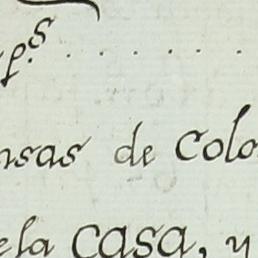 ps. . . . . .
nsas de colo
ela casa, y